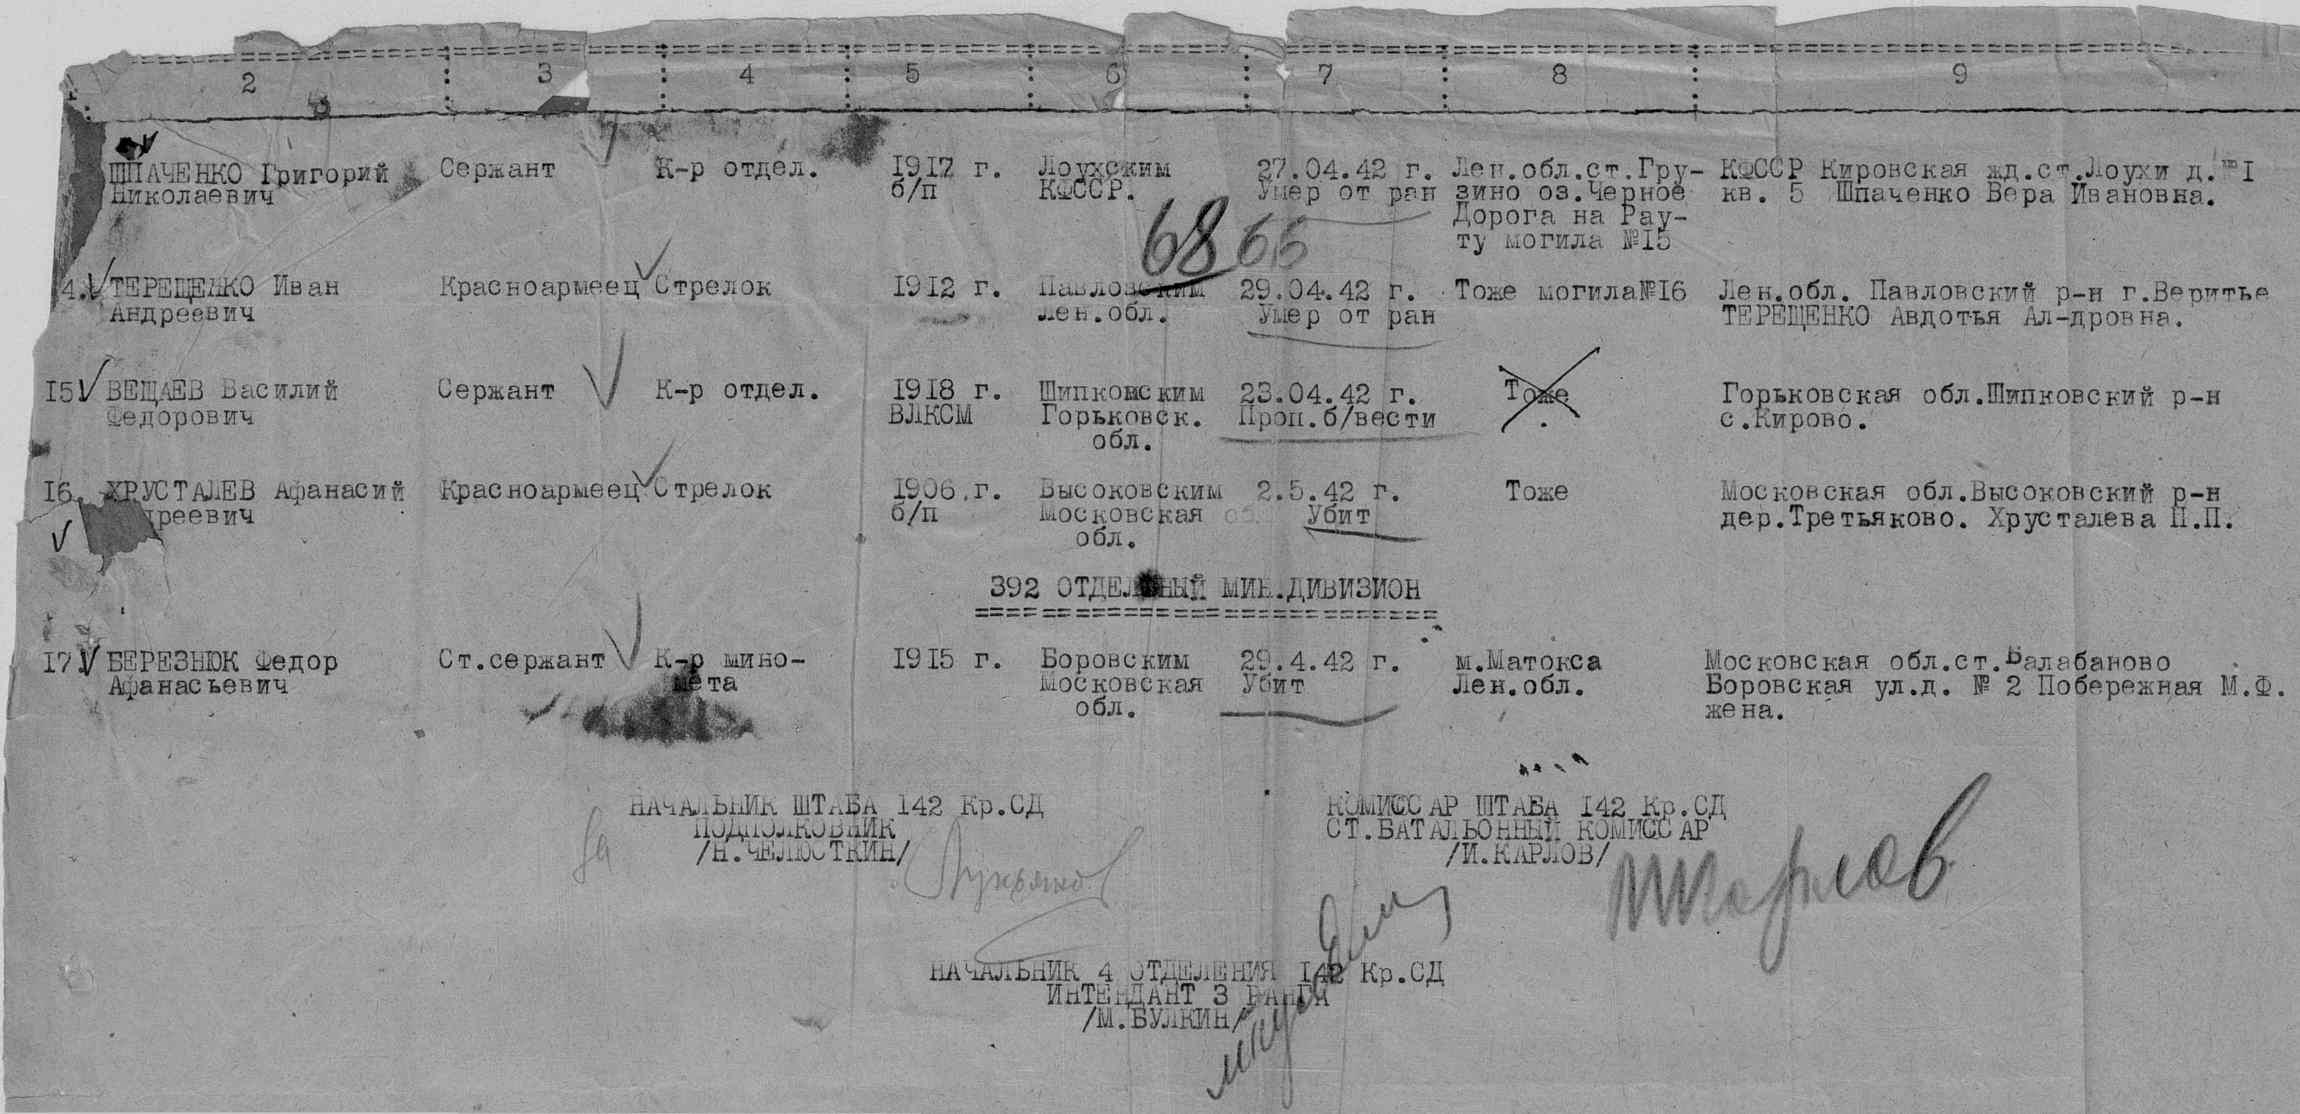 2 3 4 5 6 7 8 9
ШПАЧЕНКО Григорий Сержант К-р отдел. 1917 г. Лоухским 27.04.42 г. Лен.обл.ст.Гру- КФССР Кировская жд.ст.Лоухи д.№1
Николаевич б/п КФССР. Умер от ран зино оз.Черное кв. 5 Шпаченко Вера Ивановна.
Дорога на Рау-
ту могила №15
68 66
4. ТЕРЕЩЕНКО Иван Красноармеец Стрелок 1912 г. Павловским 29.04.42 г. Тоже могила№16 Лен.обл. Павловский р-н г.Веритье
Андреевич Лен.обл. Умер от ран ТЕРЕЩЕНКО Авдотья Ал-дровна.
15. ВЕЩАЕВ Василий Сержант К-р отдел. 1918 г. Шипковским 23.04.42 г. Тоже Горьковская обл.Шипковский р-н
Федорович ВЛКСМ Горьковск. Проп.б/вести . с.Кирово.
обл.
16. ХРУСТАЛЕВ Афанасий Красноармеец Стрелок 1906 г. Высоковским 2.5.42 г. Тоже Московская обл.Высоковский р-н
дреевич б/п Московская об. Убит дер.Третьяково. Хрусталева П.П.
обл.
392 ОТДЕЛЬНЫЙ МИН.ДИВИЗИОН
17. БЕРЕЗНЮК Федор Ст.сержант К-р мино- 1915 г. Боровским 29.4.42 г. м.Матокса Московская обл.ст.Балабаново
Афанасьевич мета Московская Убит Лен.обл. Боровская ул.д. № 2 Побережная М.Ф.
обл. жена.
НАЧАЛЬНИК ШТАБА 142 Кр.СД КОМИССАР ШТАБА 142 Кр.СД
ПОДПОЛКОВНИК СТ.БАТАЛЬОННЫЙ КОМИССАР
/Н.ЧЕЛЮСТКИН/ /И.КАРЛОВ/
за Лукьянов ИКарлов
НАЧАЛЬНИК 4 ОТДЕЛЕНИЯ 142 Кр.СД
ИНТЕНДАНТ 3 РАНГА
/М.БУЛКИН/